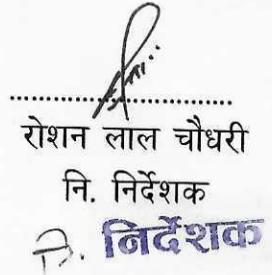 रोशन लाल चौधरी
नि. निर्देशक
नि. निर्देशक